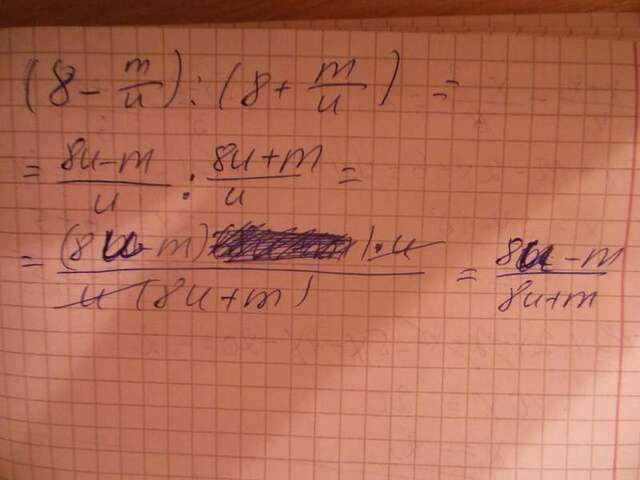 (8 - m/u) : (8 + m/u) =
= 8u-m/u : 8u+m/u =
= (8u-m) ) · u / u (8u+m) = 8u-m/8u+m